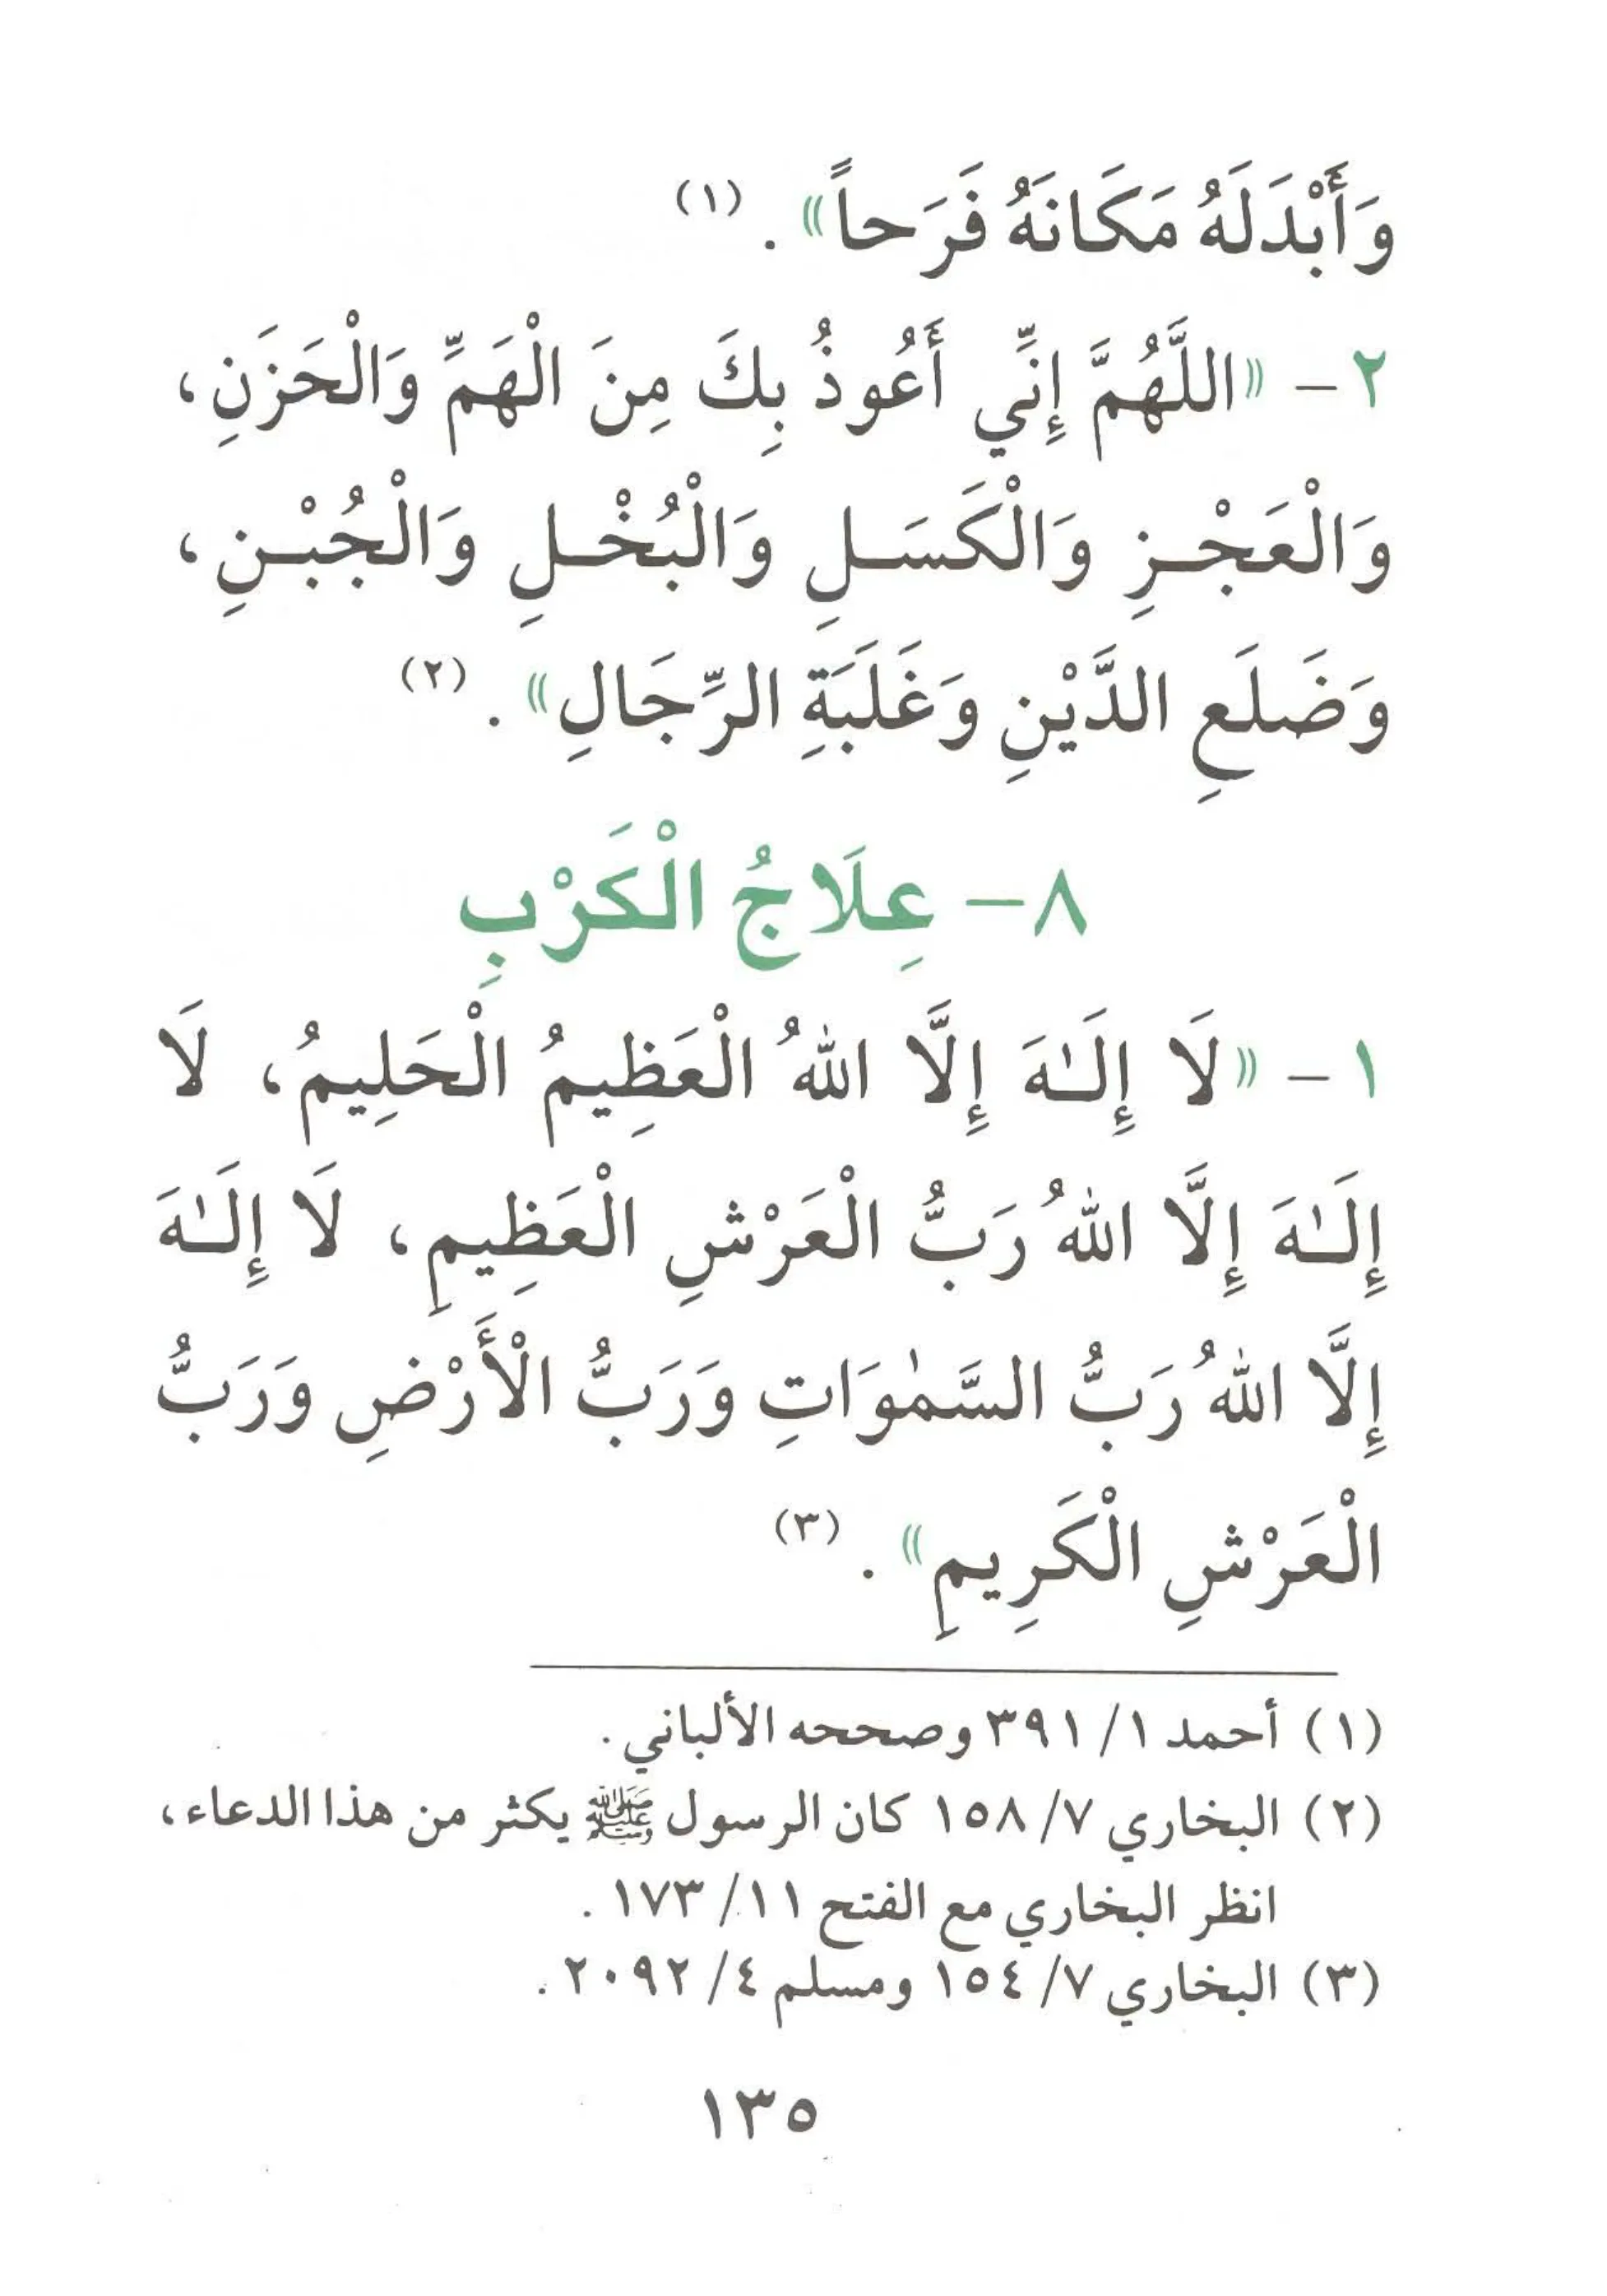 وَأَبْدَلَهُ مَكَانَهُ فَرَحاً» . (١)
٢ - «اللَّهُمَّ إِنِّي أَعُوذُ بِكَ مِنَ الْهَمِّ وَالْحَزَنِ،
وَالْعَجْـزِ وَالْكَسَـلِ وَالْبُخْـلِ وَالْجُبْـنِ،
وَضَلَعِ الدَّيْنِ وَغَلَبَةِ الرِّجَالِ» . (٢)
٨ - عِلَاجُ الْكَرْبِ
١ - «لَا إِلَـٰهَ إِلَّا اللهُ الْعَظِيمُ الْحَلِيمُ، لَا
إِلَـٰهَ إِلَّا اللهُ رَبُّ الْعَرْشِ الْعَظِيمِ، لَا إِلَـٰهَ
إِلَّا اللهُ رَبُّ السَّمٰوَاتِ وَرَبُّ الْأَرْضِ وَرَبُّ
الْعَرْشِ الْكَرِيمِ» . (٣)
(١) أحمد ١/ ٣٩١ وصححه الألباني.
(٢) البخاري ٧/ ١٥٨ كان الرسول ﷺ يكثر من هذا الدعاء،
انظر البخاري مع الفتح ١١/ ١٧٣ .
(٣) البخاري ٧/ ١٥٤ ومسلم ٤/ ٢٠٩٢ .
١٣٥